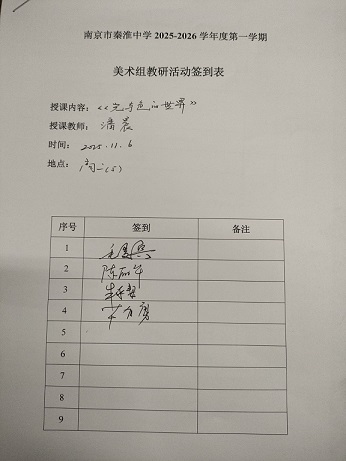 南京市秦淮中学 2025-2026 学年度第一学期
美术组教研活动签到表
授课内容：《光与色的世界》
授课教师：潘晨
时间：2025.11.6
地点：高二(5)
序号 签到 备注
1
2 陈丽华
3
4
5
6
7
8
9